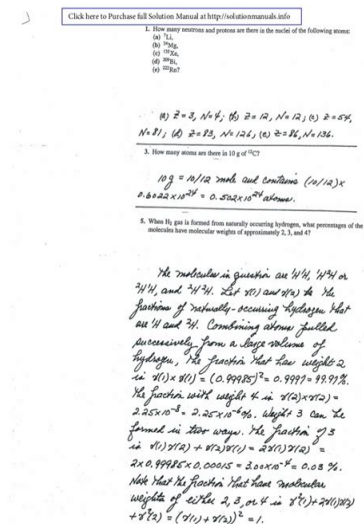 Click here to Purchase full Solution Manual at http://solutionmanuals.info
1. How many neutrons and protons are there in the nuclei of the following atoms:
(a) ⁷Li,
(b) ²⁴Mg,
(c) ¹³⁵Xe,
(d) ²⁰⁹Bi,
(e) ²²²Rn?
(a) Z=3, N=4; (b) Z=12, N=12; (c) Z=54,
N=81; (d) Z=83, N=126; (e) Z=86, N=136.
3. How many atoms are there in 10 g of ¹²C?
10g = 10/12 mole and contains (10/12)×
0.6022×10²⁴ = 0.502×10²⁴ atoms.
5. When H₂ gas is formed from naturally occurring hydrogen, what percentages of the
molecules have molecular weights of approximately 2, 3, and 4?
The molecules in question are ¹H¹H, ¹H²H or
²H¹H, and ²H²H. Let γ(1) and γ(2) be the
fractions of naturally-occurring hydrogen that
are ¹H and ²H. Combining atoms pulled
successively from a large volume of
hydrogen, the fraction that has weight 2
is γ(1)×γ(1) = (0.99985)² = 0.9997 = 99.97%.
The fraction with weight 4 is γ(2)×γ(2) =
2.25×10⁻⁸ = 2.25×10⁻⁶%. Weight 3 can be
formed in two ways. The fraction of 3
is γ(1)γ(2) + γ(2)γ(1) = 2γ(1)γ(2) =
2×0.99985×0.00015 = 3.00×10⁻⁴ = 0.03 %.
Note that the fraction that have molecular
weights of either 2, 3, or 4 is γ²(1)+2γ(1)γ(2)
+γ²(2) = (γ(1)+γ(2))² = 1.